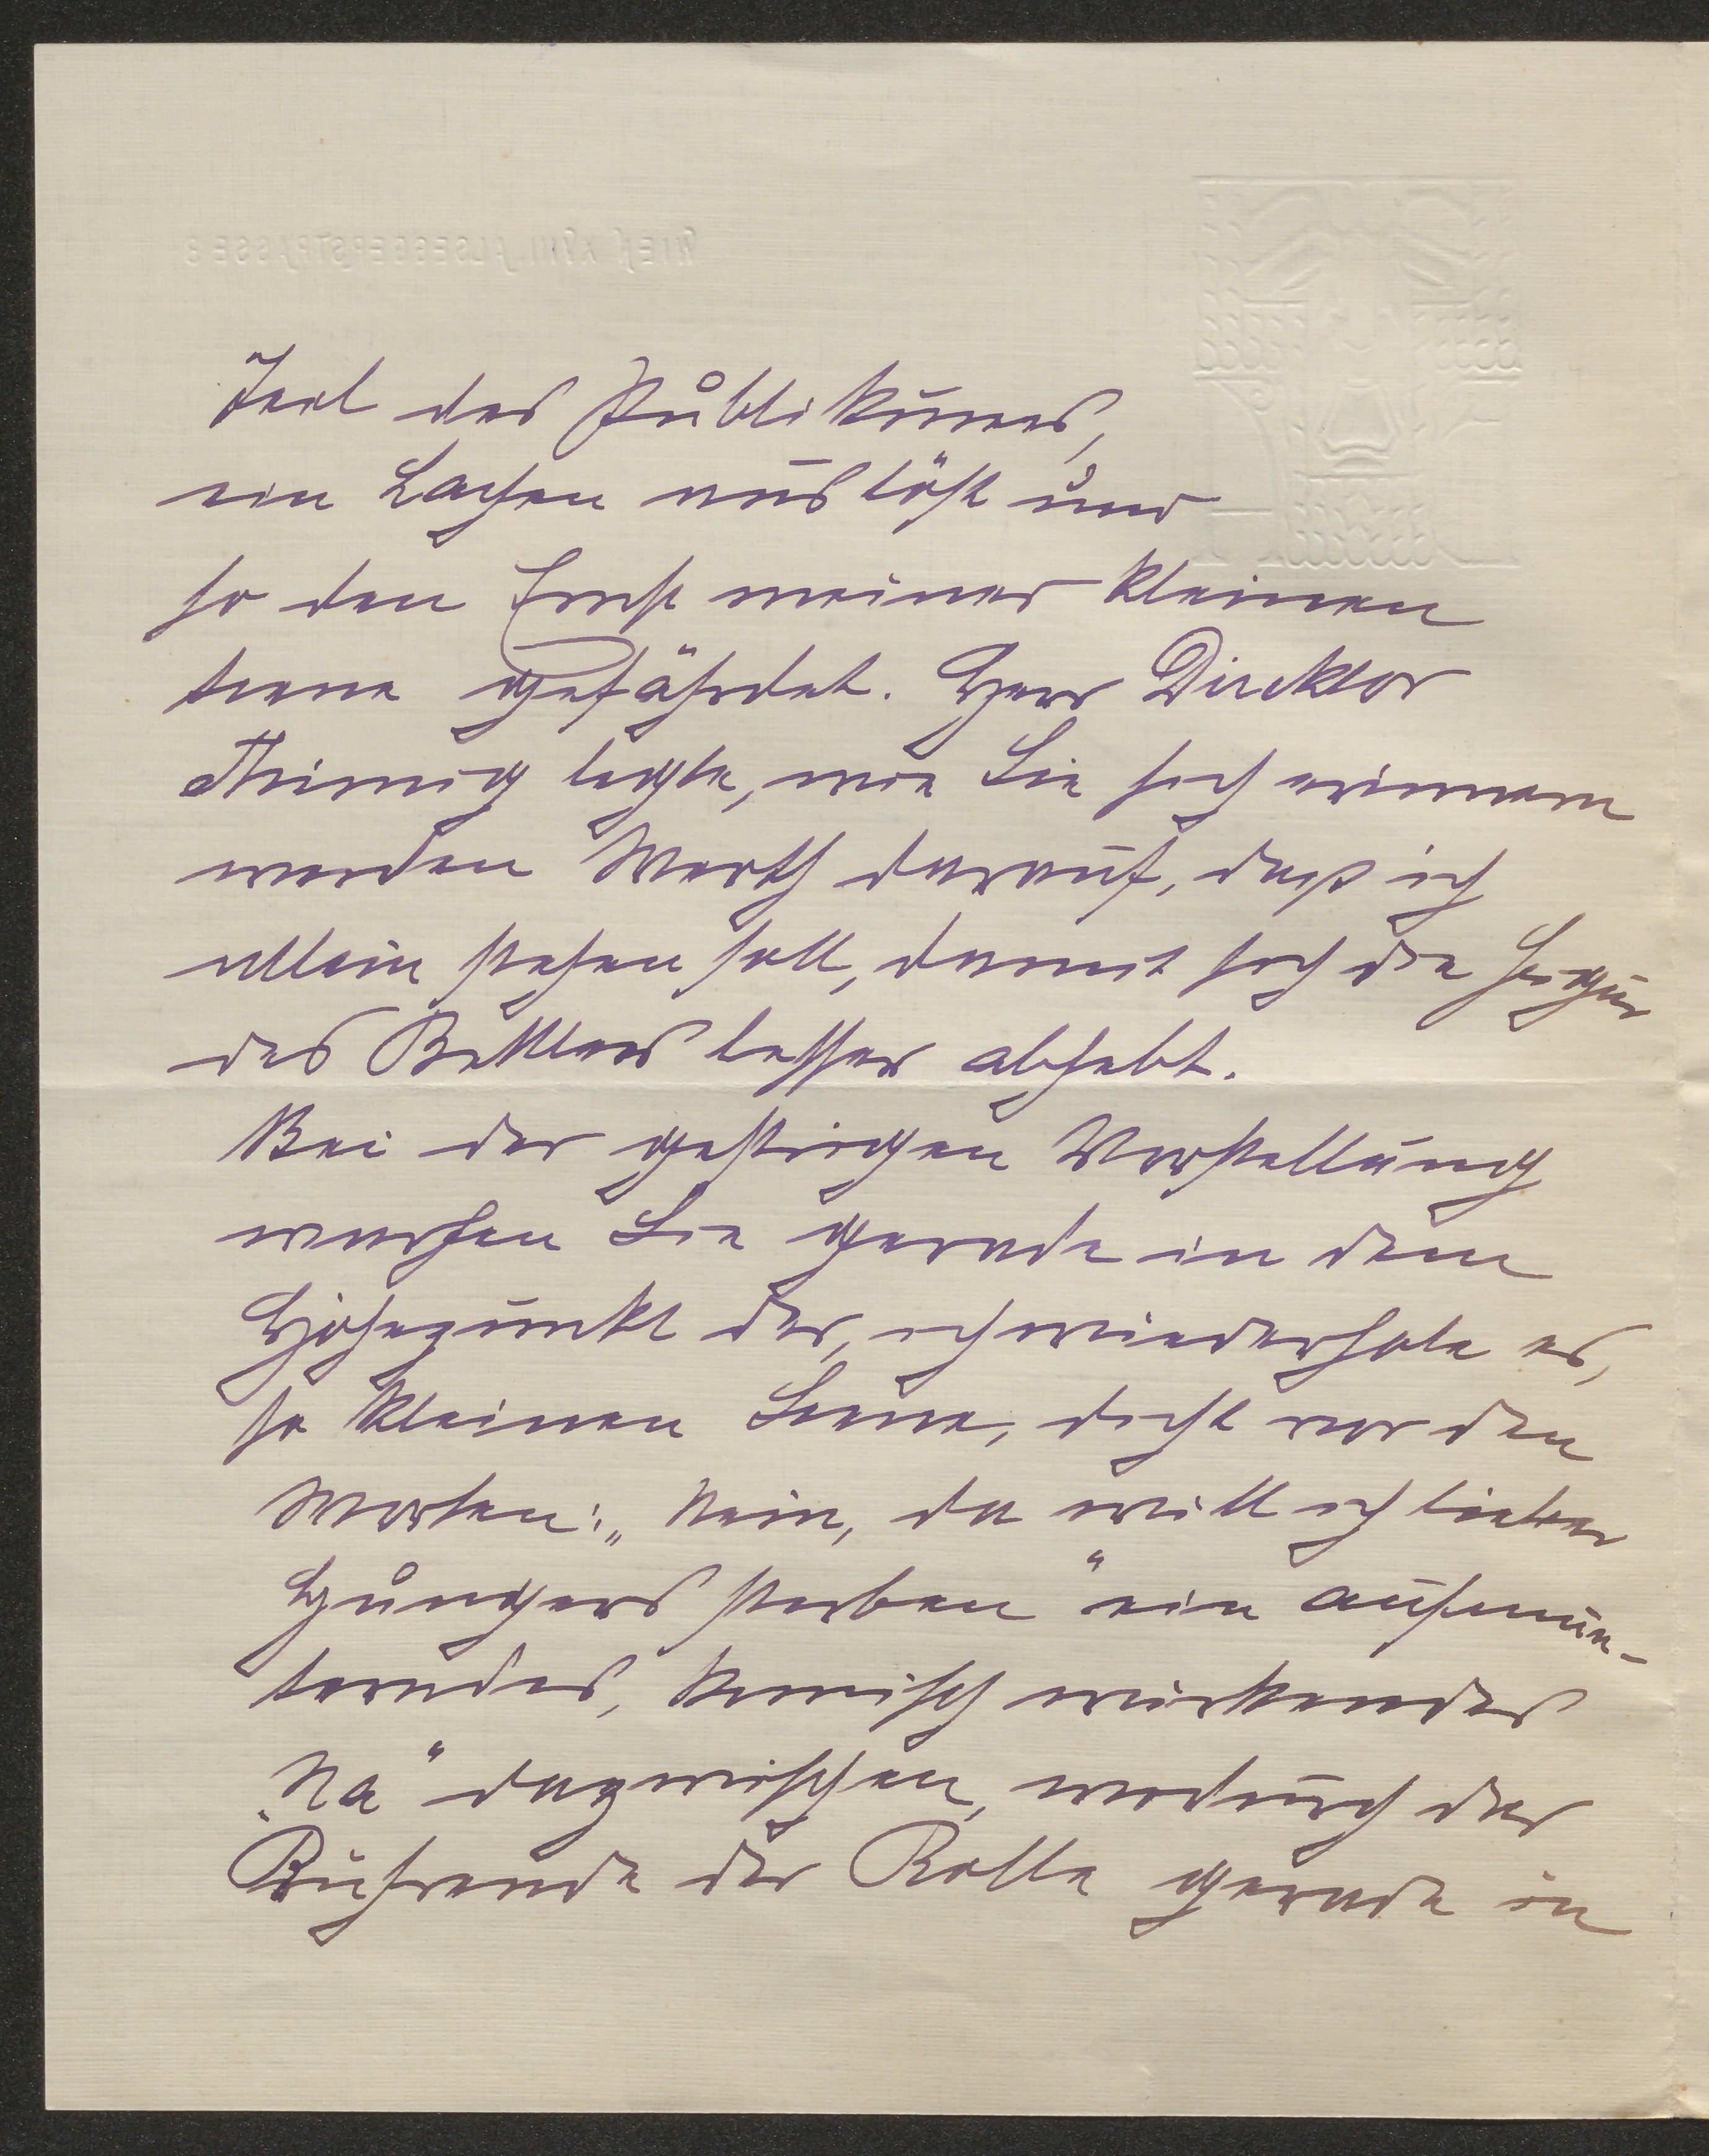 WIEN XVIII. ALSEGGERSTRASSE 3
Teil des Publikums,
ein Lachen auslöst und
so den Ernst meiner kleinen
Scene gefährdet. Herr Direktor
Thimig legte, wie Sie sich erinnern
werden Werth darauf, daß ich
allein stehen soll, damit sich die Figur
des Bettlers besser abhebt.
Bei der gestrigen Vorstellung
warfen Sie gerade in dem
Höhepunkt der, ich wiederhole es,
so kleinen Scene, dicht vor den
Worten: „Nein, da will ich lieber
Hungers sterben" ein aufmun-
terndes, komisch wirkendes
„Na" dazwischen, wodurch das
Rührende der Rolle gerade in